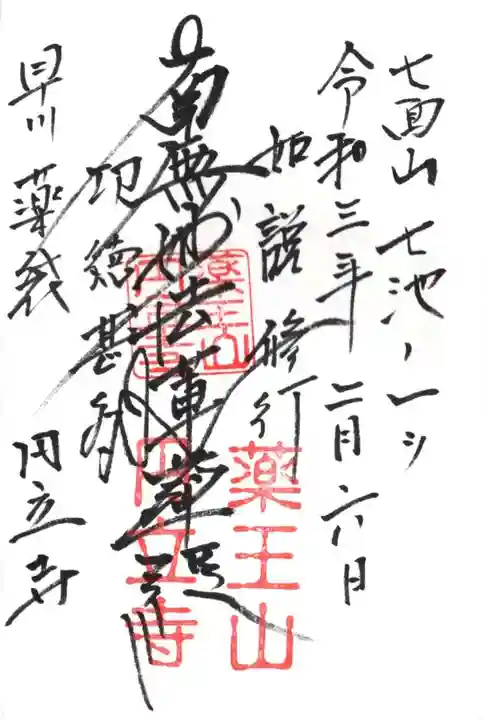 七面山 七池ノ一ツ
令和三年二月六日
如説修行
南無妙法蓮華経
功徳甚多
早川 薬袋 円立寺
薬王山
円立寺
薬王山
円立寺